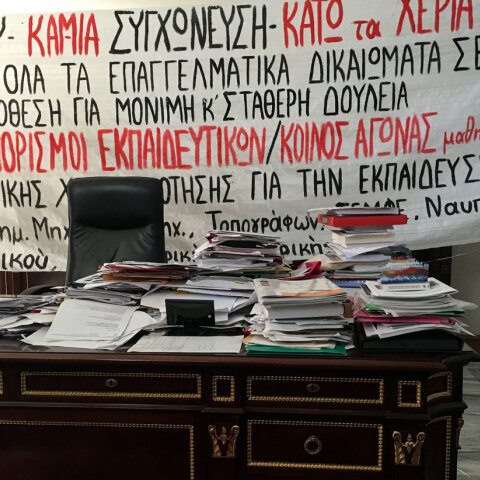 ΚΑΜΙΑ ΣΥΓΧΩΝΕΥΣΗ - ΚΑΤΩ τα ΧΕΡΙΑ
ΟΛΑ ΤΑ ΕΠΑΓΓΕΛΜΑΤΙΚΑ ΔΙΚΑΙΩΜΑΤΑ ΣΕ
ΟΘΕΣΗ ΓΙΑ ΜΟΝΙΜΗ Κ' ΣΤΑΘΕΡΗ ΔΟΥΛΕΙΑ
ΟΡΙΣΜΟΙ ΕΚΠΑΙΔΕΥΤΙΚΩΝ/ΚΟΙΝΟΣ ΑΓΩΝΑΣ μαθη
ΙΚΗΣ Χ ΟΤΗΣΗΣ ΓΙΑ ΤΗΝ ΕΚΠΑΙΔΕΥΣ
ημ. Μηχ χ., Τοπογράφων, ΣΕΜΦΕ, Ναυπ
ικού, ρικής